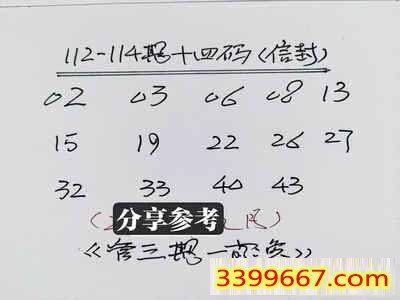 112-114期十四码(信封)
02 03 06 08 13
15 19 22 26 27
32 33 40 43
分享参考
《管三期一
3399667.com